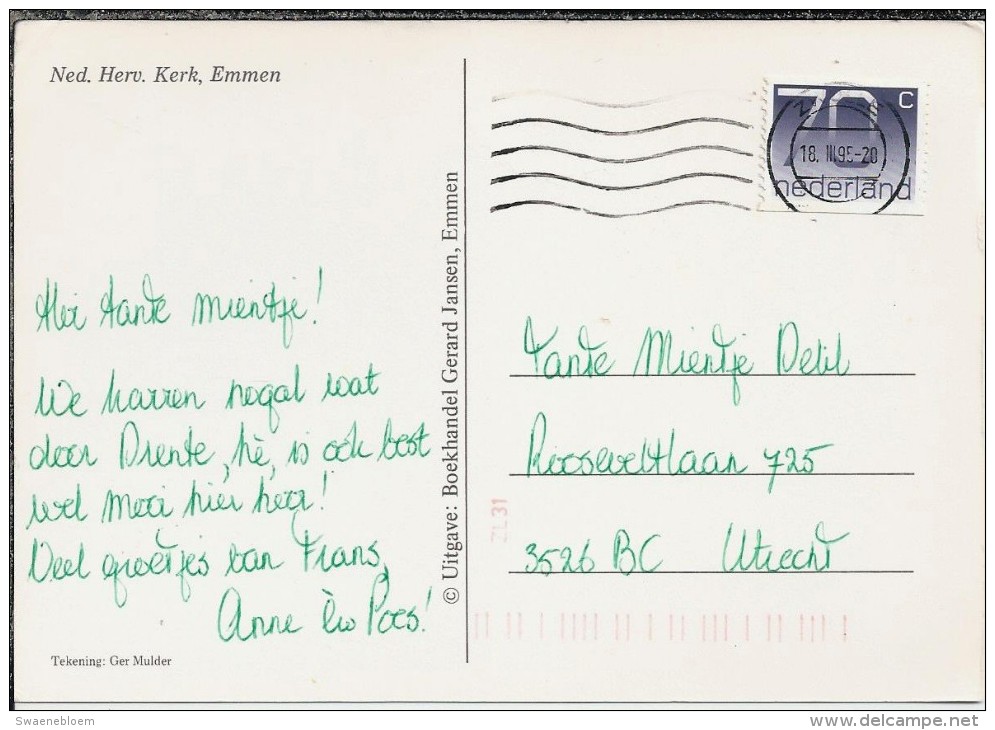 Ned. Herv. Kerk, Emmen
Hei tante Mientje!
We karren nogal wat
door Drente, hè, is ook best
wel mooi hier hoor!
Veel groetjes van Frans,
Anne en Poes!
Tekening: Ger Mulder
© Uitgave: Boekhandel Gerard Jansen, Emmen
70 c
nederland
18. III.95-20
Tante Mientje Delil
Rooseveltlaan 725
3526 BC Utrecht
ZL31
Swaenebloem
delcampe.net